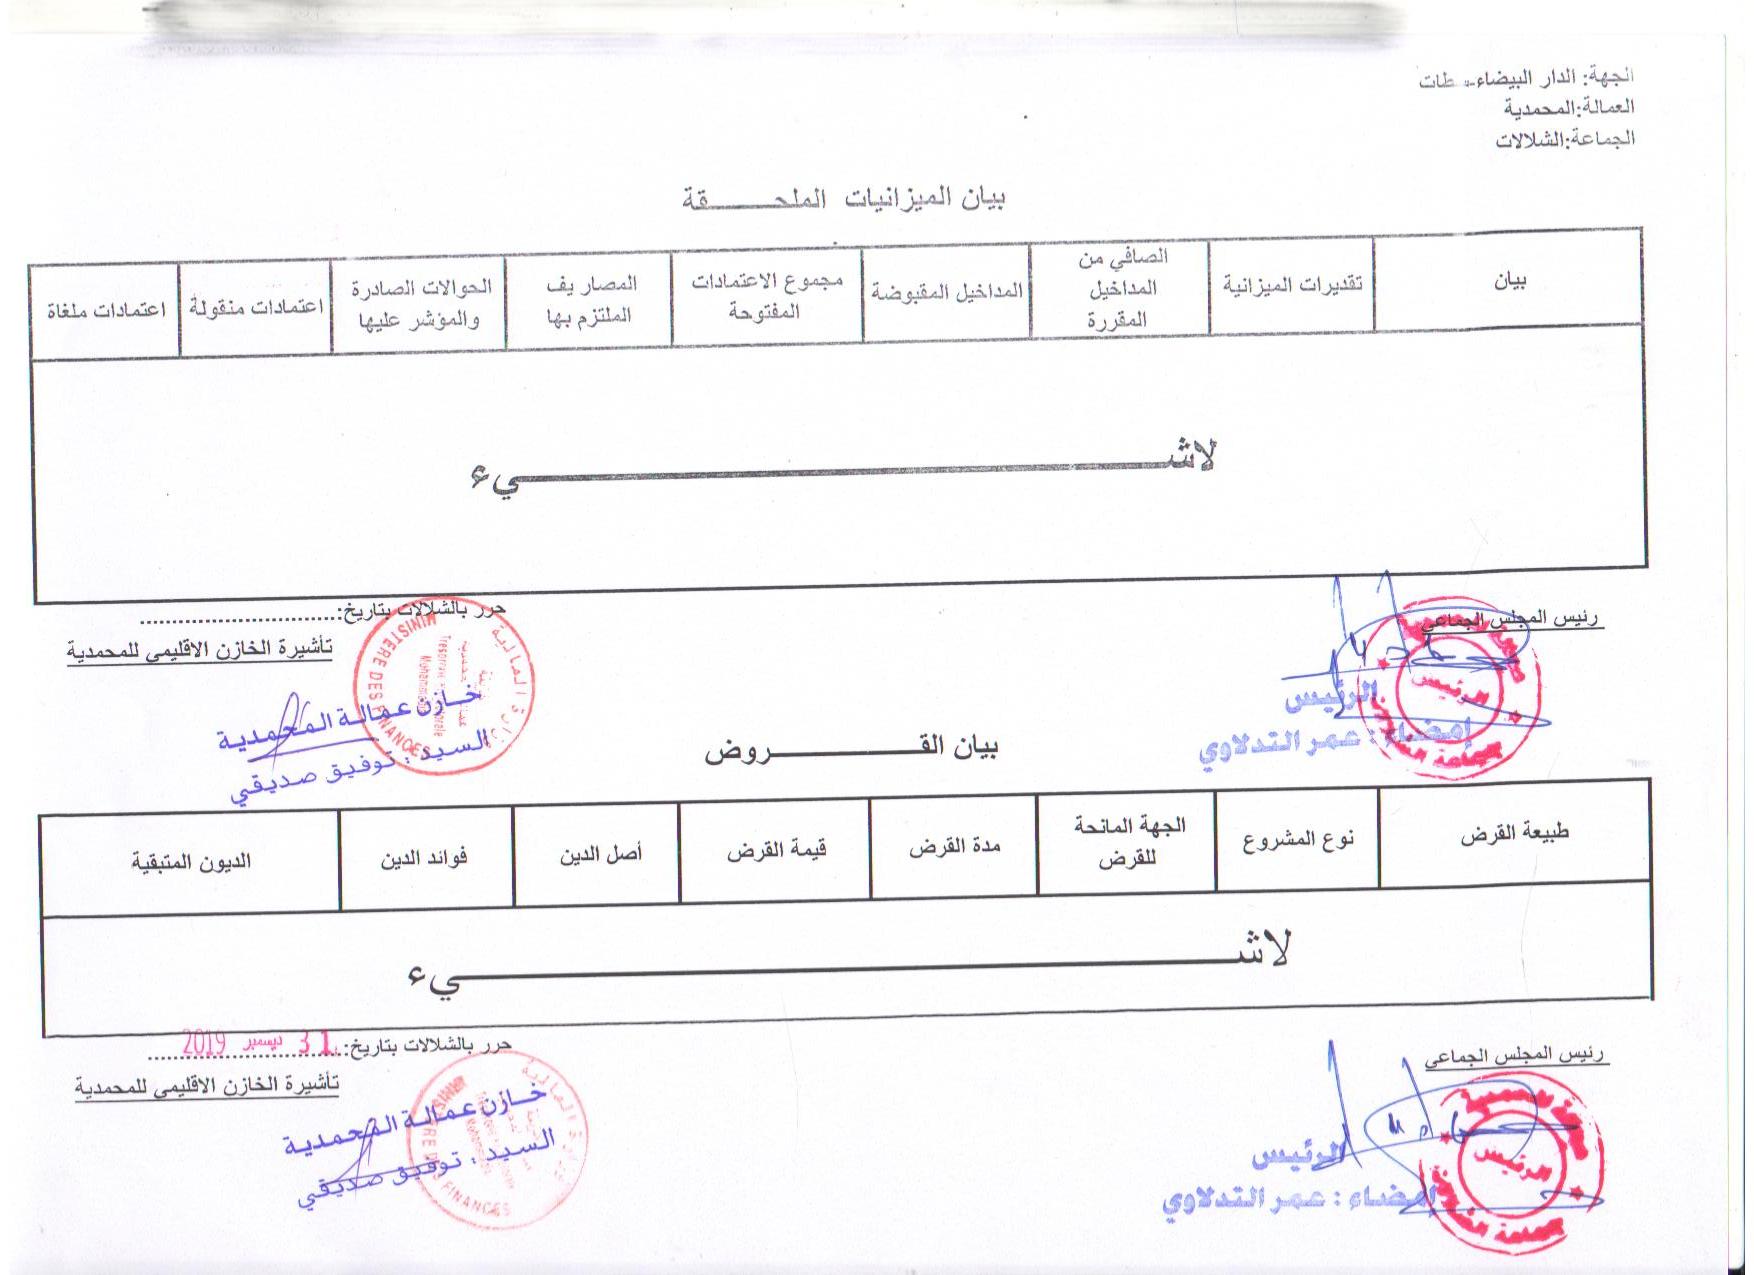 الجهة: الدار البيضاء-
العمالة:المحمدية
الجماعة:الشلالات
بيان الميزانيات الملحـــــــقة
بيان
تقديرات الميزانية
الصافي من
المداخيل
المقررة
المداخيل المقبوضة
مجموع الاعتمادات
المفتوحة
المصاريف
الملتزم بها
الحوالات الصادرة
والمؤشر عليها
اعتمادات منقولة
اعتمادات ملغاة
لاشــــــــــــــــــــــــــــــــــــــــــــــــــيء
رئيس المجلس الجماعي
الرئيس
إمضاء : عمر التدلاوي
الرئيس
حرر بالشلالات بتاريخ:..............................
تأشيرة الخازن الاقليمي للمحمدية
وزارة المالية
MINISTERE DES FINANCES
خازن عمالة المحمدية
السيد : توفيق صديقي
بيان القــــــــــــــروض
طبيعة القرض
نوع المشروع
الجهة المانحة
للقرض
مدة القرض
قيمة القرض
أصل الدين
فوائد الدين
الديون المتبقية
لاشــــــــــــــــــــــــــــــــــــــــــــــــــيء
رئيس المجلس الجماعي
الرئيس
إمضاء : عمر التدلاوي
الرئيس
حرر بالشلالات بتاريخ:..............................
31 ديسمبر 2019
تأشيرة الخازن الاقليمي للمحمدية
وزارة المالية
FINANCES
خازن عمالة المحمدية
السيد : توفيق صديقي